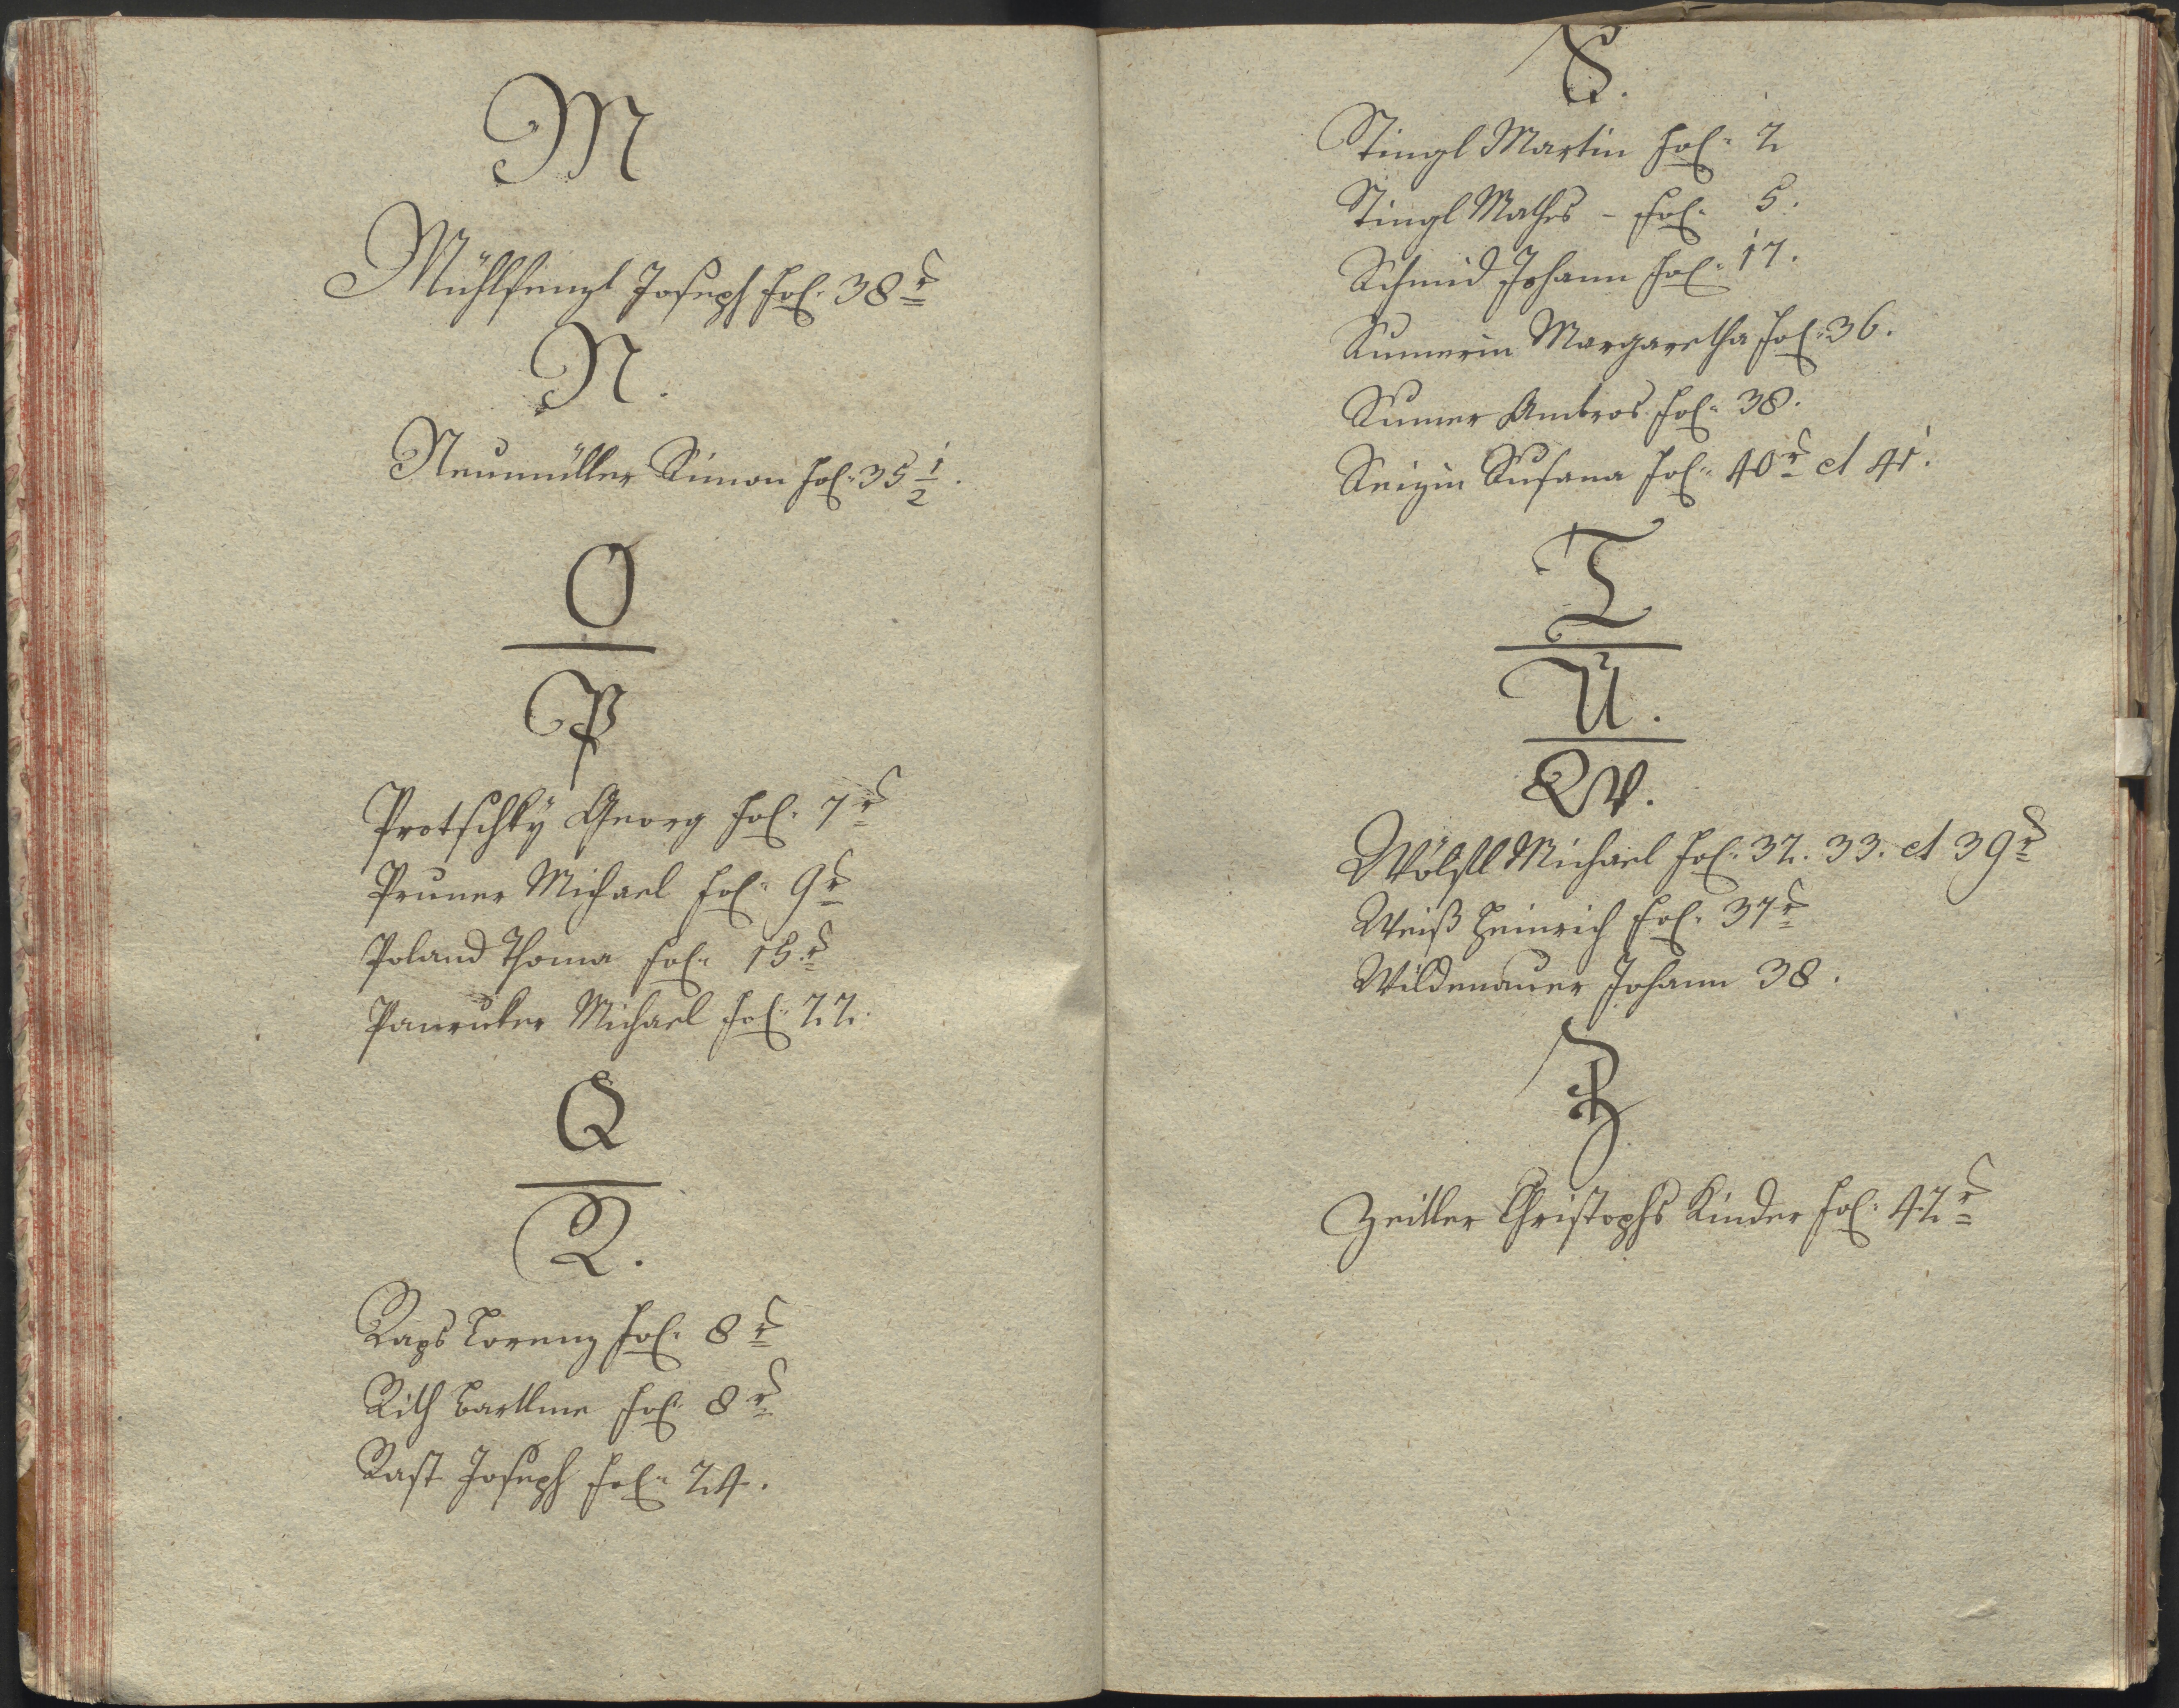 M
Mühlfenzl Joseph Fol. 38 r
N.
Neumüller Simon Fol. 35 1/2.
O
P
Protschkÿ Georg Fol. 7 r
Pruner Michael Fol. 9 r
Poland Thoma Fol. 15. r
Panruker Michael Fol. 22.
Q
R.
Raps Lorenz Fol. 8 r
Rith Bartlme Fol. 8 r
Rast Joseph Fol. 24.
S.
Stingl Martin Fol. 2
Stingl Mathes - Fol. 5.
Schmid Johann Fol. 17.
Sumerin Margaretha Fol. 36.
Sumer Ambros Fol. 38.
Seizin Susana Fol. 40 r et 41.
T
U.
W.
Wölfll Michael Fol. 32. 33. et 39 r
Weiß Heinrich Fol. 37 r
Wildenauer Johann 38.
Z
Zeitler Christophs Kinder Fol. 42 r